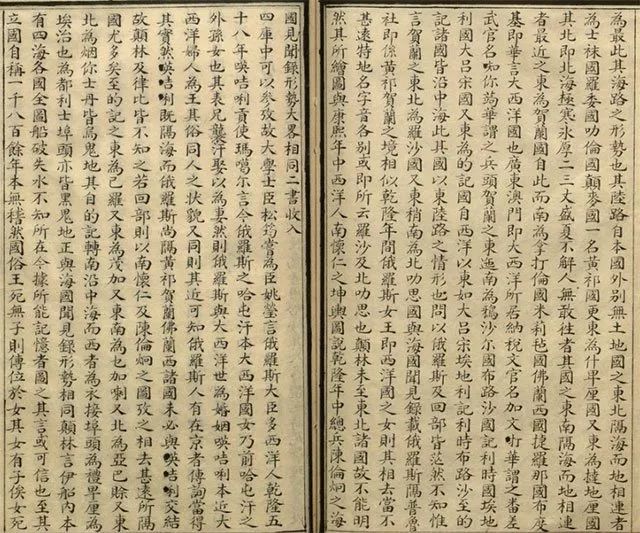 為最此其海路之形勢也其陸路自本國外别無土地國之東北隔海而地相連者
為士袜國羅委國叻倫國顛麥國一名黃祁國更東為什卑厘國又東為撻地厘國
其北即北海極寒氷厚二三丈盛夏不解人無敢徃者其國之東南隔海而地相連
者最近之東為賀蘭國自此而南為拿打倫國米利毡國佛蘭西國捷羅那國布度
基即華言大西洋國也廣東澳門即大西洋所君納税文官名加文吖華謂之番差
武官名咖你華謂之兵頭賀蘭之東迤南為沙尔國布路沙國記利時國埃地
利國大呂宋國又東為的記國自西洋以東如大呂宋埃地利記利時布路沙至的
記諸國皆沿中海此其國以東陸路之情形也問以俄羅斯及回部皆茫然不知惟
言賀蘭之東為羅沙國又東稍南為北叻思國與海國聞見錄載俄羅斯隔普魯
社即係黃祁賀蘭之境相似乾隆年間俄羅斯女王即西洋國之女則其相去當不
甚遠特地名字音各别或即所云羅沙及北叻思也顛林未至東北諸國故不能明
然其所繪圖與康熙年中西洋人南懷仁之坤輿圖說乾隆年中總兵陳倫炯之海
國見聞錄形勢大畧相同二書收入
四庫中可以參攷故大學士臣松筠嘗為臣姚瑩言俄羅斯大臣多西洋人乾隆五
十八年𠸄咭唎貢使瑪噶尔言今俄羅斯之哈屯汗本大西洋國女乃前哈屯汗之
外孫女也其表兄襲汗娶以為妻然則俄羅斯與大西洋世為婚姻𠸄咭唎本近大
西洋婦人為王其俗同人之狀貌又同則其近可知俄羅斯人有在京者傳詢當得
其實然𠸄咭唎既隔海而俄羅斯尚隔黃祁賀蘭佛蘭西諸國未必與𠸄咭唎交結
故顛林及律比皆不知之若回部則以南懷仁及陳倫炯之圖攷之相去甚遠所隔
國尤多矣至的記之東為巳羅又東為茂加又東南為乜加喇又北為亞巳賒又東
北為烟你士丹皆為鬼地其自的記轉南沿中海而西者為衣接埠頭為禮卑厘為
埃治也為都利士埠頭亦皆黑鬼地正與海國聞見錄形勢相同顛林言伊船內本
有四海各國全圖船破失水不知所在今據所能記憶者圖之其言或可信也至其
立國自稱一千八百餘年本無稽然國俗王死無子則傳位於女其女有子俟女死